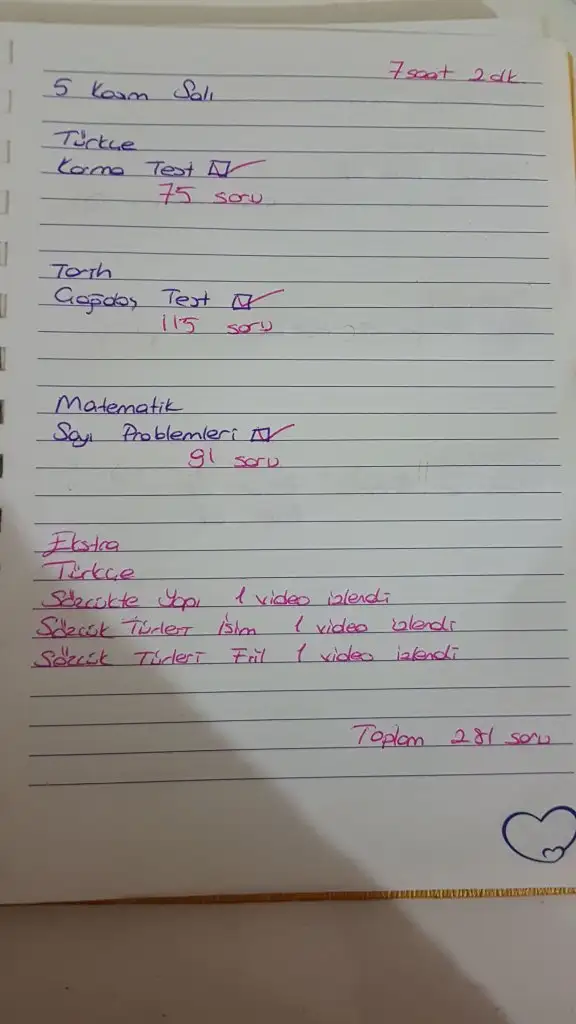 7 saat 2 dk
5 Kasım Salı
Türkçe
Karma Test
75 soru
Tarih
Çağdaş Test
115 soru
Matematik
Sayı Problemleri
91 soru
Ekstra
Türkçe
Sözcükte Yapı 1 video izlendi
Sözcük Türleri İsim 1 video izlendi
Sözcük Türleri Fiil 1 video izlendi
Toplam 281 soru